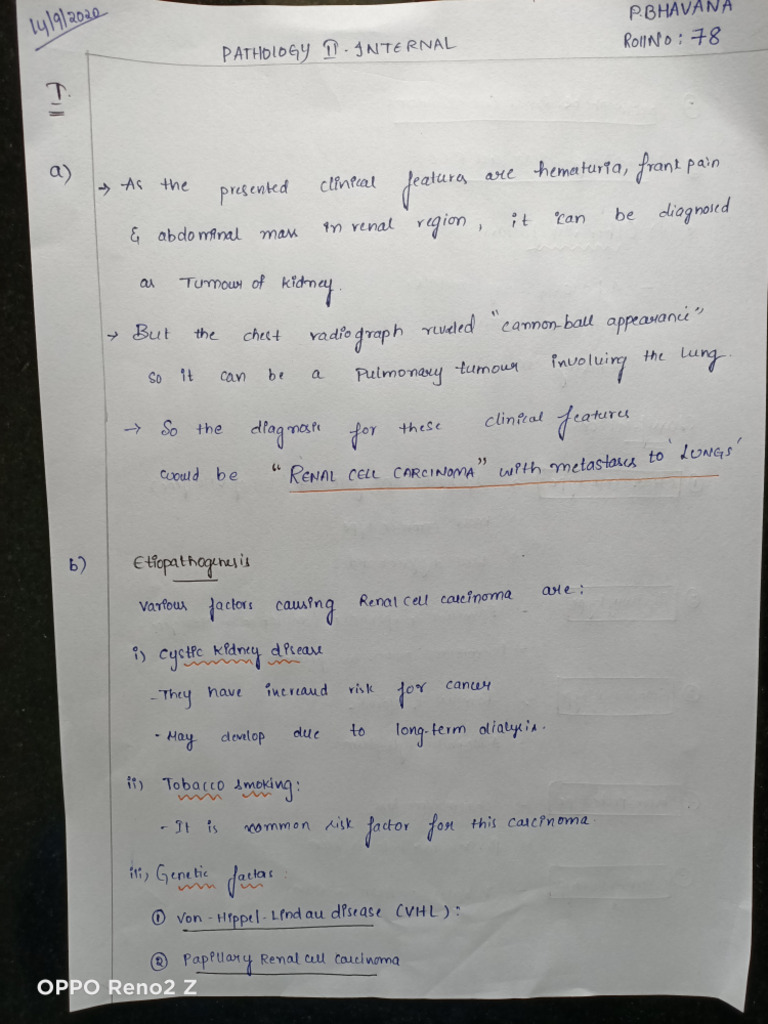 14/9/2020
P.BHAVANA
PATHOLOGY II - INTERNAL
Roll No : 78
I.
a) → As the presented clinical features are hematuria, frank pain
& abdominal mass in renal region, it can be diagnosed
as Tumour of kidney.
→ But the chest radiograph revealed "cannon-ball appearance"
so it can be a Pulmonary tumour involving the lung.
→ So the diagnosis for these clinical features
would be "RENAL CELL CARCINOMA" with metastases to 'LUNGS'
b) Etiopathogenesis
Various factors causing Renal cell carcinoma are :
i) Cystic kidney disease
- They have increased risk for cancer
- May develop due to long-term dialysis.
ii) Tobacco smoking :
- It is common risk factor for this carcinoma.
iii) Genetic factors :
① Von - Hippel - Lindau disease (VHL) :
② Papillary Renal cell carcinoma
OPPO Reno2 Z